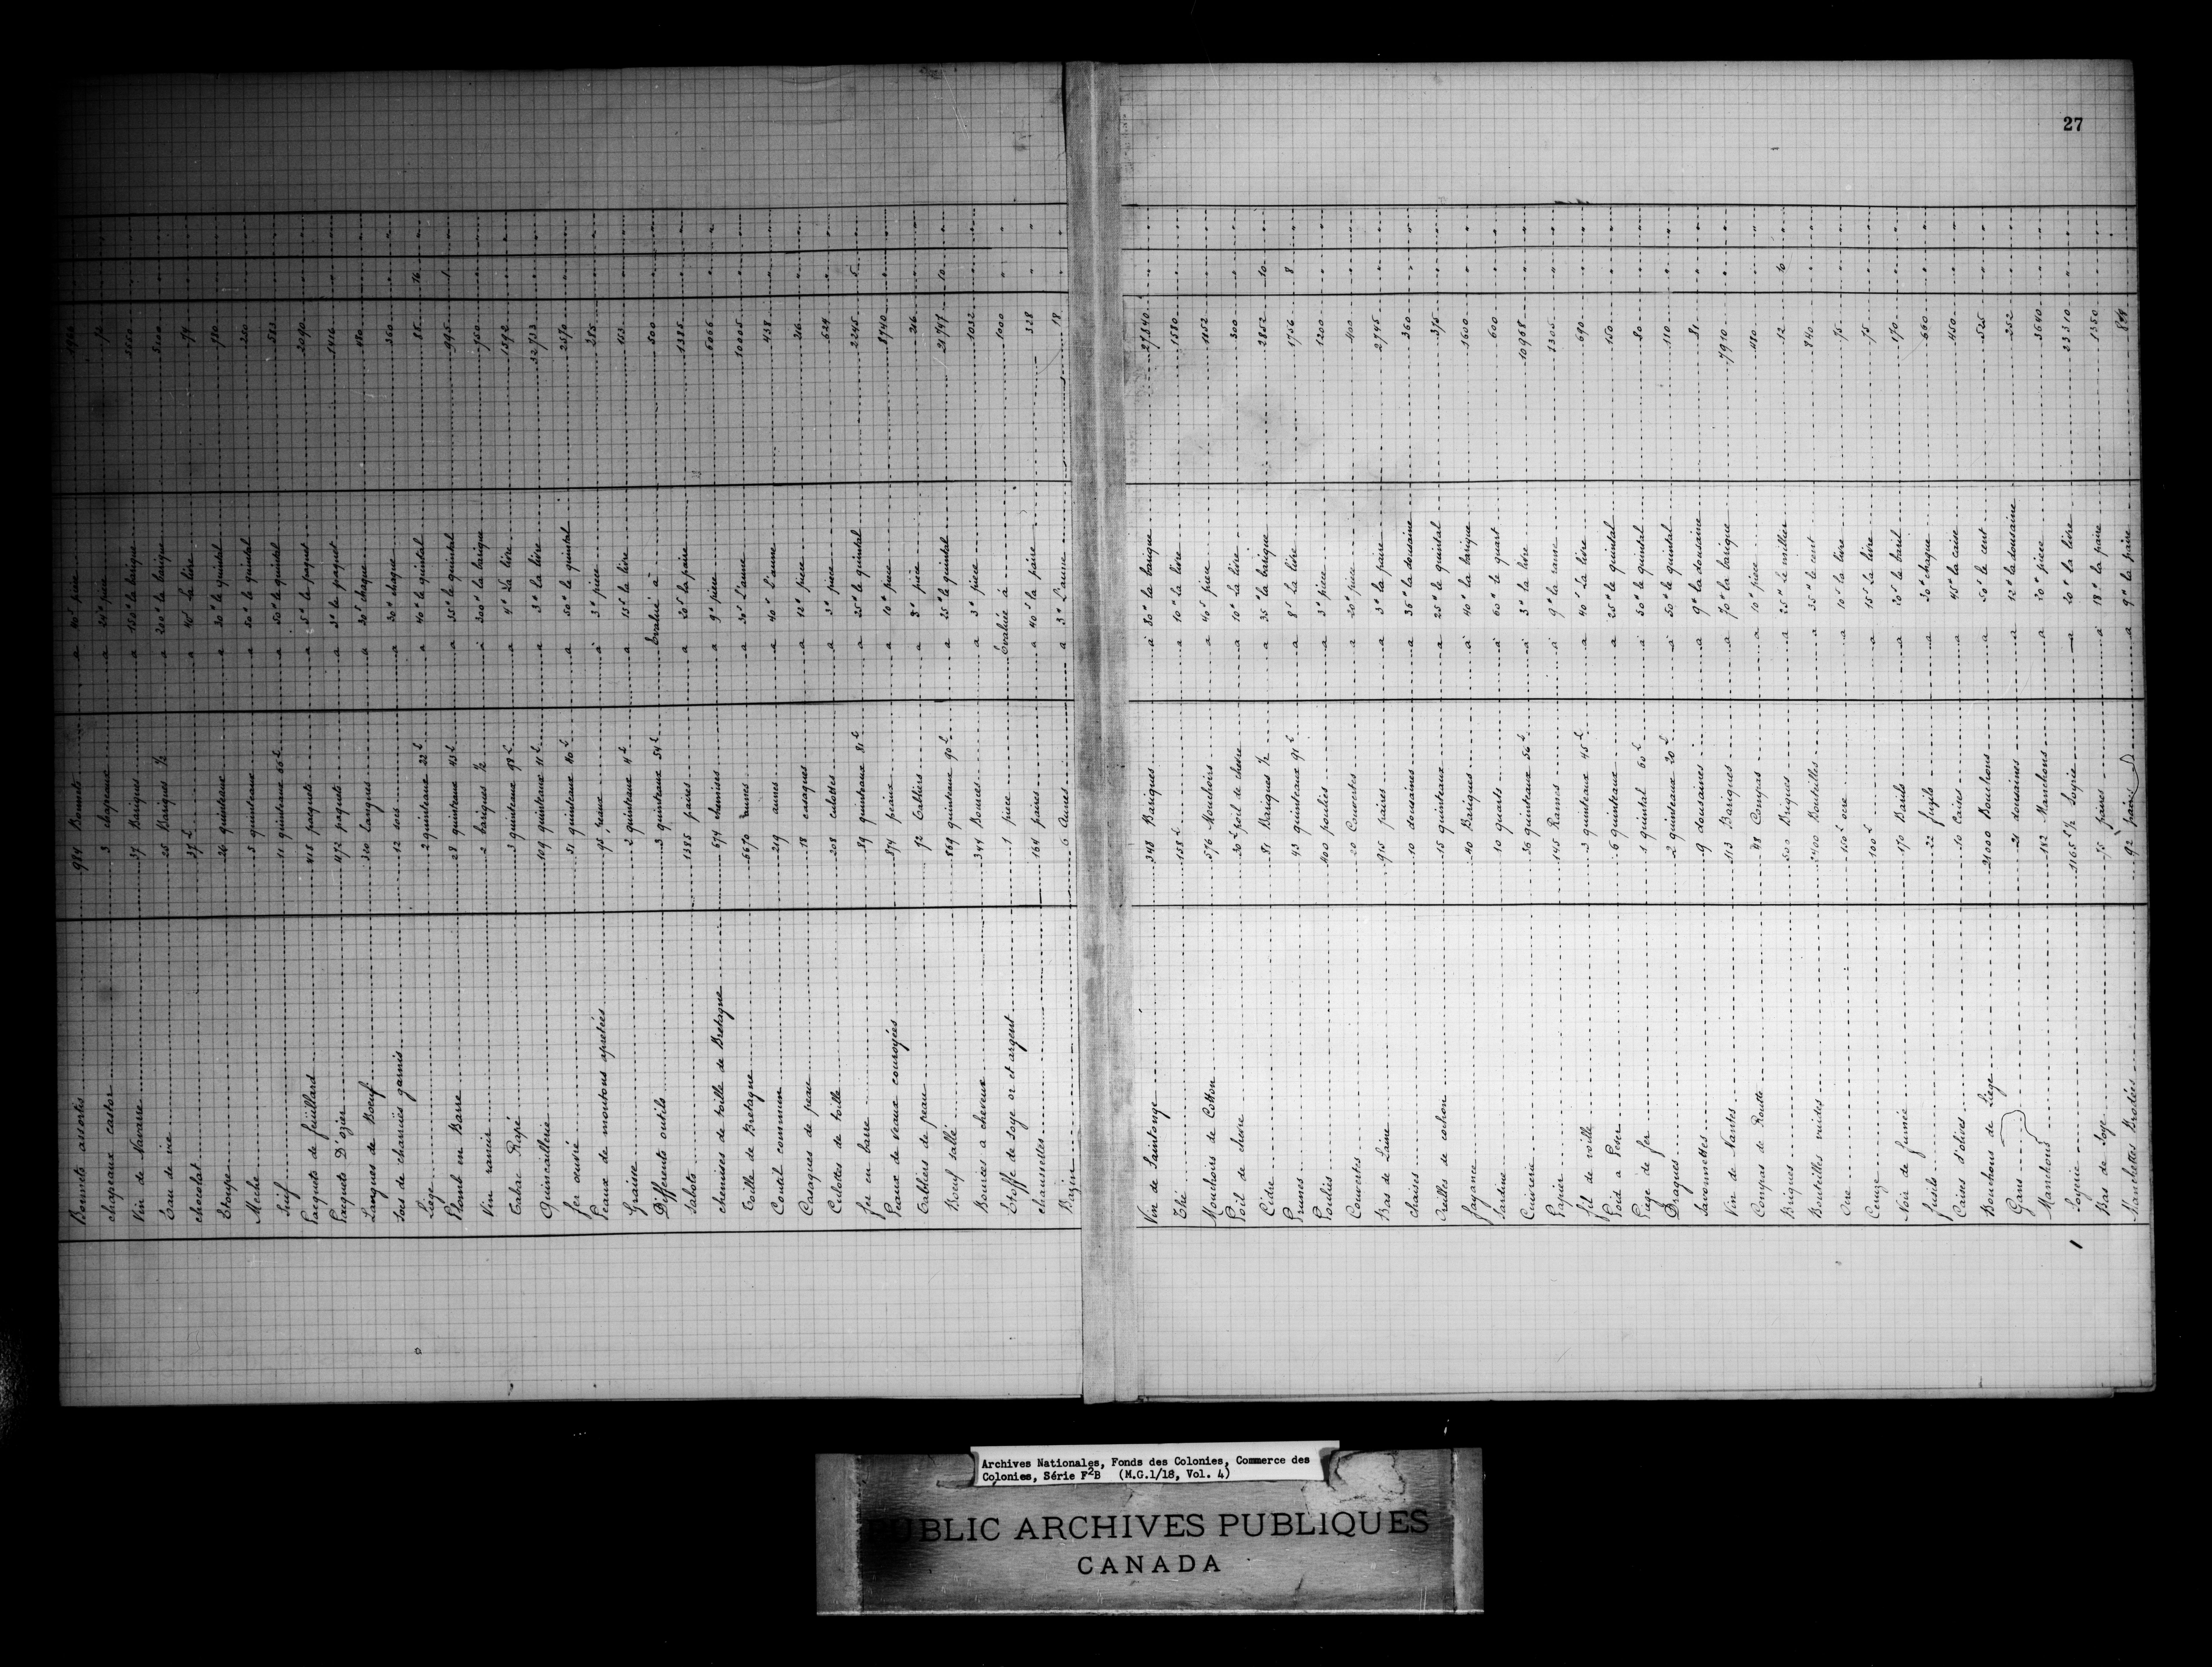 27
Bonnets assortis 984 Bonnets a 40ˢ piece 1968
chapeaux castor 3 chapeaux a 24ᵗ piece 72
Vin de Navarre 37 Bariques a 150ᵗ la barique 5550
Eau de vie 25 Bariques ½ a 200ᵗ la barique
chocolat 37ᴸ a 40ˢ La livre 74
Etoupe 26 quinteaux a 30ᵗ le quintal 780
Meche 5 quinteaux a 50ᵗ le quintal 250
Suif 11 quinteaux 66ᴸ a 50ᵗ le quintal 583
Pacquets de feüillard 418 paquets a 5ᵗ le paquet 2090
Pacquets D'ozier 472 paquets a 3ᵗ le paquet 1416
Langues de Boeuf 320 Langues a 30ˢ chaque 480
Socs de charrües garnis 12 socs a 30ᵗ chaque 360
Liège 2 quinteaux 22ᴸ a 40ᵗ le quintal 88 16
Plomb en Barre 28 quinteaux 43ᴸ a 35ᵗ le quintal 995 1
Vin rancir 2 bariques ½ à 300ᵗ la barique 750
Tabac Rapé 3 quinteaux 98ᴸ a 4ᵗ La livre 1592
Quincaillerie 109 quinteaux 11ᴸ a 3ᵗ La livre 32733
fer oeuvré 51 quinteaux 40ᴸ a 50ᵗ le quintal 2570
Peaux de moutons apretées 95 peaux à 3ᵗ piece 285
Graine 2 quinteaux 4ᴸ a 15ˢ la livre 153
Differents outils 3 quinteaux 54ᴸ Evalué à 500
Sabots 1385 paires a 20ˢ la paire 1385
chemises de toille de Bretagne 674 chemises a 9ᵗ piece 6066
Toille de Bretagne 6670 aunes a 30ˢ L'aune 10005
Coutil commun 219 aunes a 40ˢ L'aune 438
Casaques de peau 18 casaques a 12ᵗ piece 216
Culottes de toille 208 culottes a 3ᵗ piece 624
fer en barre 89 quinteaux 81ᴸ a 25ᵗ le quintal 2245 5
Peaux de veaux couroyées 874 peaux a 10ᵗ piece 8740
Tabliers de peau 72 Tabliers a 3ᵗ piéce 216
Boeuf sallé 869 quinteaux 90ᴸ a 25ᵗ le quintal 21747 10
Bources a cheveux 344 Bources a 3ᵗ piece 1032
Etoffe de Soye or et argent 1 piece Evaluée à 1000
chaussettes 164 paires a 40ˢ la paire 328
Bazin 6 Aunes a 3ᵗ L'aune 18
Vin de Saintonge 348 Bariques à 80ᵗ la barique 27840
Thé 158ᴸ a 10ᵗ la livre 1580
Mouchoirs de Cotton 576 Mouchoirs a 40ˢ piece 1152
Poil de chevre 30ᴸ poil de chevre a 10ᵗ la livre 300
Cidre 81 Bariques ½ a 35ᵗ la barique 2852 10
Prunes 43 quinteaux 91ᴸ a 8ˢ La livre 1756 8
Poulies 400 poulies a 3ᵗ piece 1200
Couvertes 20 Couvertes a 20ᵗ piece 400
Bas de Laine 915 paires a 3ᵗ la paire 2745
chaises 10 dousaines a 36ᵗ la dousaine 360
Oreilles de cochon 15 quinteaux a 25ᵗ le quintal 375
fayance 40 Bariques à 40ᵗ la barique 1600
Sardine 10 quarts à 60ᵗ le quart 600
Cuivrerie 36 quinteaux 56ᴸ à 3ᵗ la livre 10968
Papier 145 Rames à 9ᵗ la rame 1305
fil de voille 3 quinteaux 45ᴸ a 40ˢ La livre 690
Poid a Peser 6 quinteaux a 25ᵗ le quintal 150
Piege de fer 1 quintal 60ᴸ à 50ᵗ le quintal 80
Dragues 2 quinteaux 20ᴸ à 50ᵗ le quintal 110
Savonnettes 9 dousaines a 9ᵗ la dousaine 81
Vin de Nantes 113 Bariques a 70ᵗ la barique 7910
Compas de Routte 48 Compas a 10ᵗ piece 480
Briques 500 Briques a 25ᵗ le millier 12 10
Bouteilles vuides 2400 Bouteilles a 35ᵗ le cent 840
Ocre 150ᴸ ocre a 10ˢ la livre 75
Ceruze 100ᴸ a 15ˢ La livre 75
Noir de fumée 170 Barils a 20ˢ le baril 170
fusils 22 fusils a 30ᵗ chaque 660
Caises d'olives 10 Caises a 45ᵗ la caise 450
Bouchons de Liège 21000 Bouchons a 50ˢ le cent 525
Gans 21 dousaines a 12ᵗ la dousaine 252
Manchons 182 Manchons a 20ᵗ piece 3640
Soyerie 1165ᴸ ½ Soyerie a 20ᵗ la livre 23310
Bas de Soye 75 paires à 18ᵗ la paire 1350
Manchettes Brodées 92 paires a 9ᵗ la paire 828
Archives Nationales, Fonds des Colonies, Commerce des
Colonies, Série F²B (M.G.1/18, Vol. 4)
PUBLIC ARCHIVES PUBLIQUES
CANADA